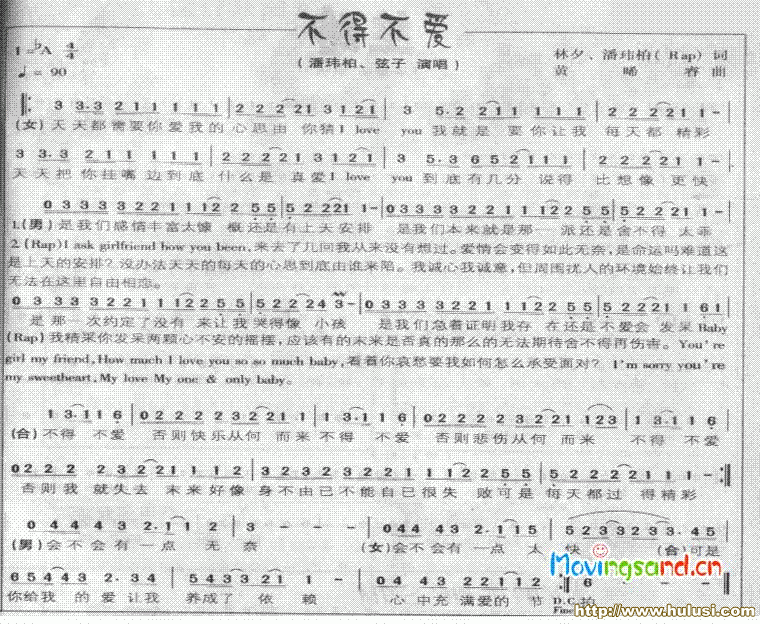 不得不爱
1=♭A 4/4
♩= 90
(潘玮柏、弦子 演唱)
林夕、潘玮柏(Rap) 词
黄 晞 春曲
3 3·3 2 1 1 1 1 1 1 | 2 2 2 2 1 3 1 2 1 | 3 5·2 2 1 1 1 1 1 | 2 2 2 2 1 1 -
(女)天天都需要你爱我的心思由 你猜I love you我就是 要你让我 每天都 精彩
3 3·3 2 1 1 1 1 1 | 2 2 2 2 1 3 1 2 1 | 3 5·3 6 5 2 1 1 1 | 2 2 2 2 1 1 -
天天把你挂嘴边到底 什么是 真爱I love you到底有几分 说得 比想像 更快
0 3 3 3 3 2 2 1 1 1 2 2 5 5 | 5 2 2 2 1 1 - | 0 3 3 3 3 2 2 1 1 1 2 2 5 5 | 5 2 2 2 1 1 -
1.(男)是我们感情丰富太慷 概还是有上天安排 是我们本来就是那一 派还是舍不得 太乖
2.(Rap)I ask girlfriend how you been,来去了几回我从来没有想过。爱情会变得如此无奈,是命运吗难道这
是上天的安排?没办法天天的每天的心思到底由谁来陪。我诚心我诚意,但周围扰人的环境始终让我们
无法在这里自由相恋。
0 3 3 3 3 2 2 1 1 1 2 2 5 5 | 5 2 2 2 4 3 - | 0 3 3 3 3 2 2 1 1 1 2 2 5 5 | 5 2 2 2 1 1 6 1
是那一次约定了没有 来让我哭得像 小孩 是我们急着证明我存 在还是不爱会 发呆Baby
(Rap)我精采你发呆两颗心不安的摇摆,应该有的未来是否真的那么的无法期待舍不得再伤害。You're
girl my friend, How much I love you so so much baby,看着你哀愁要我如何怎么承受面对? I'm sorry you're
my sweetheart, My love My one & only baby。
1 3·1 1 6 | 0 2 2 2 2 3 2 2 1 1 | 1 3·1 1 6 | 0 2 2 2 2 3 2 2 1 1 2 3 | 1 3·1 1 6
(合)不得 不爱 否则快乐从何 而来不得 不爱 否则悲伤从何 而来 不得 不爱
0 2 2 2 2 3 2 2 1 1 1 2 | 3 2 3 2 3 2 2 1 | 1 1 2 2 5 5 | 5 2 2 2 1 1 -
否则我 就失去 未来好像 身不由己不能自已很失 败可是 每天都过 得精彩
0 4 4 4 3 2·1 1 2 | 3 - - - | 0 4 4 4 3 2·1 1 5 | 5 2 3 3 2 3 3·4 5
(男)会不会有一点 无奈 (女)会不会有一点 太 快 (合)可是
6 5 4 4 3 2·3 4 | 5 4 3 3 2 1 1 - | 0 4 4 4 3 2 2 1 1 2 | 6 -
你给我 的爱让我 养成了 依 赖 心中充 满爱的 节 D.C.拍
Fine
Movingsand.cn
http://www.hulusi.com